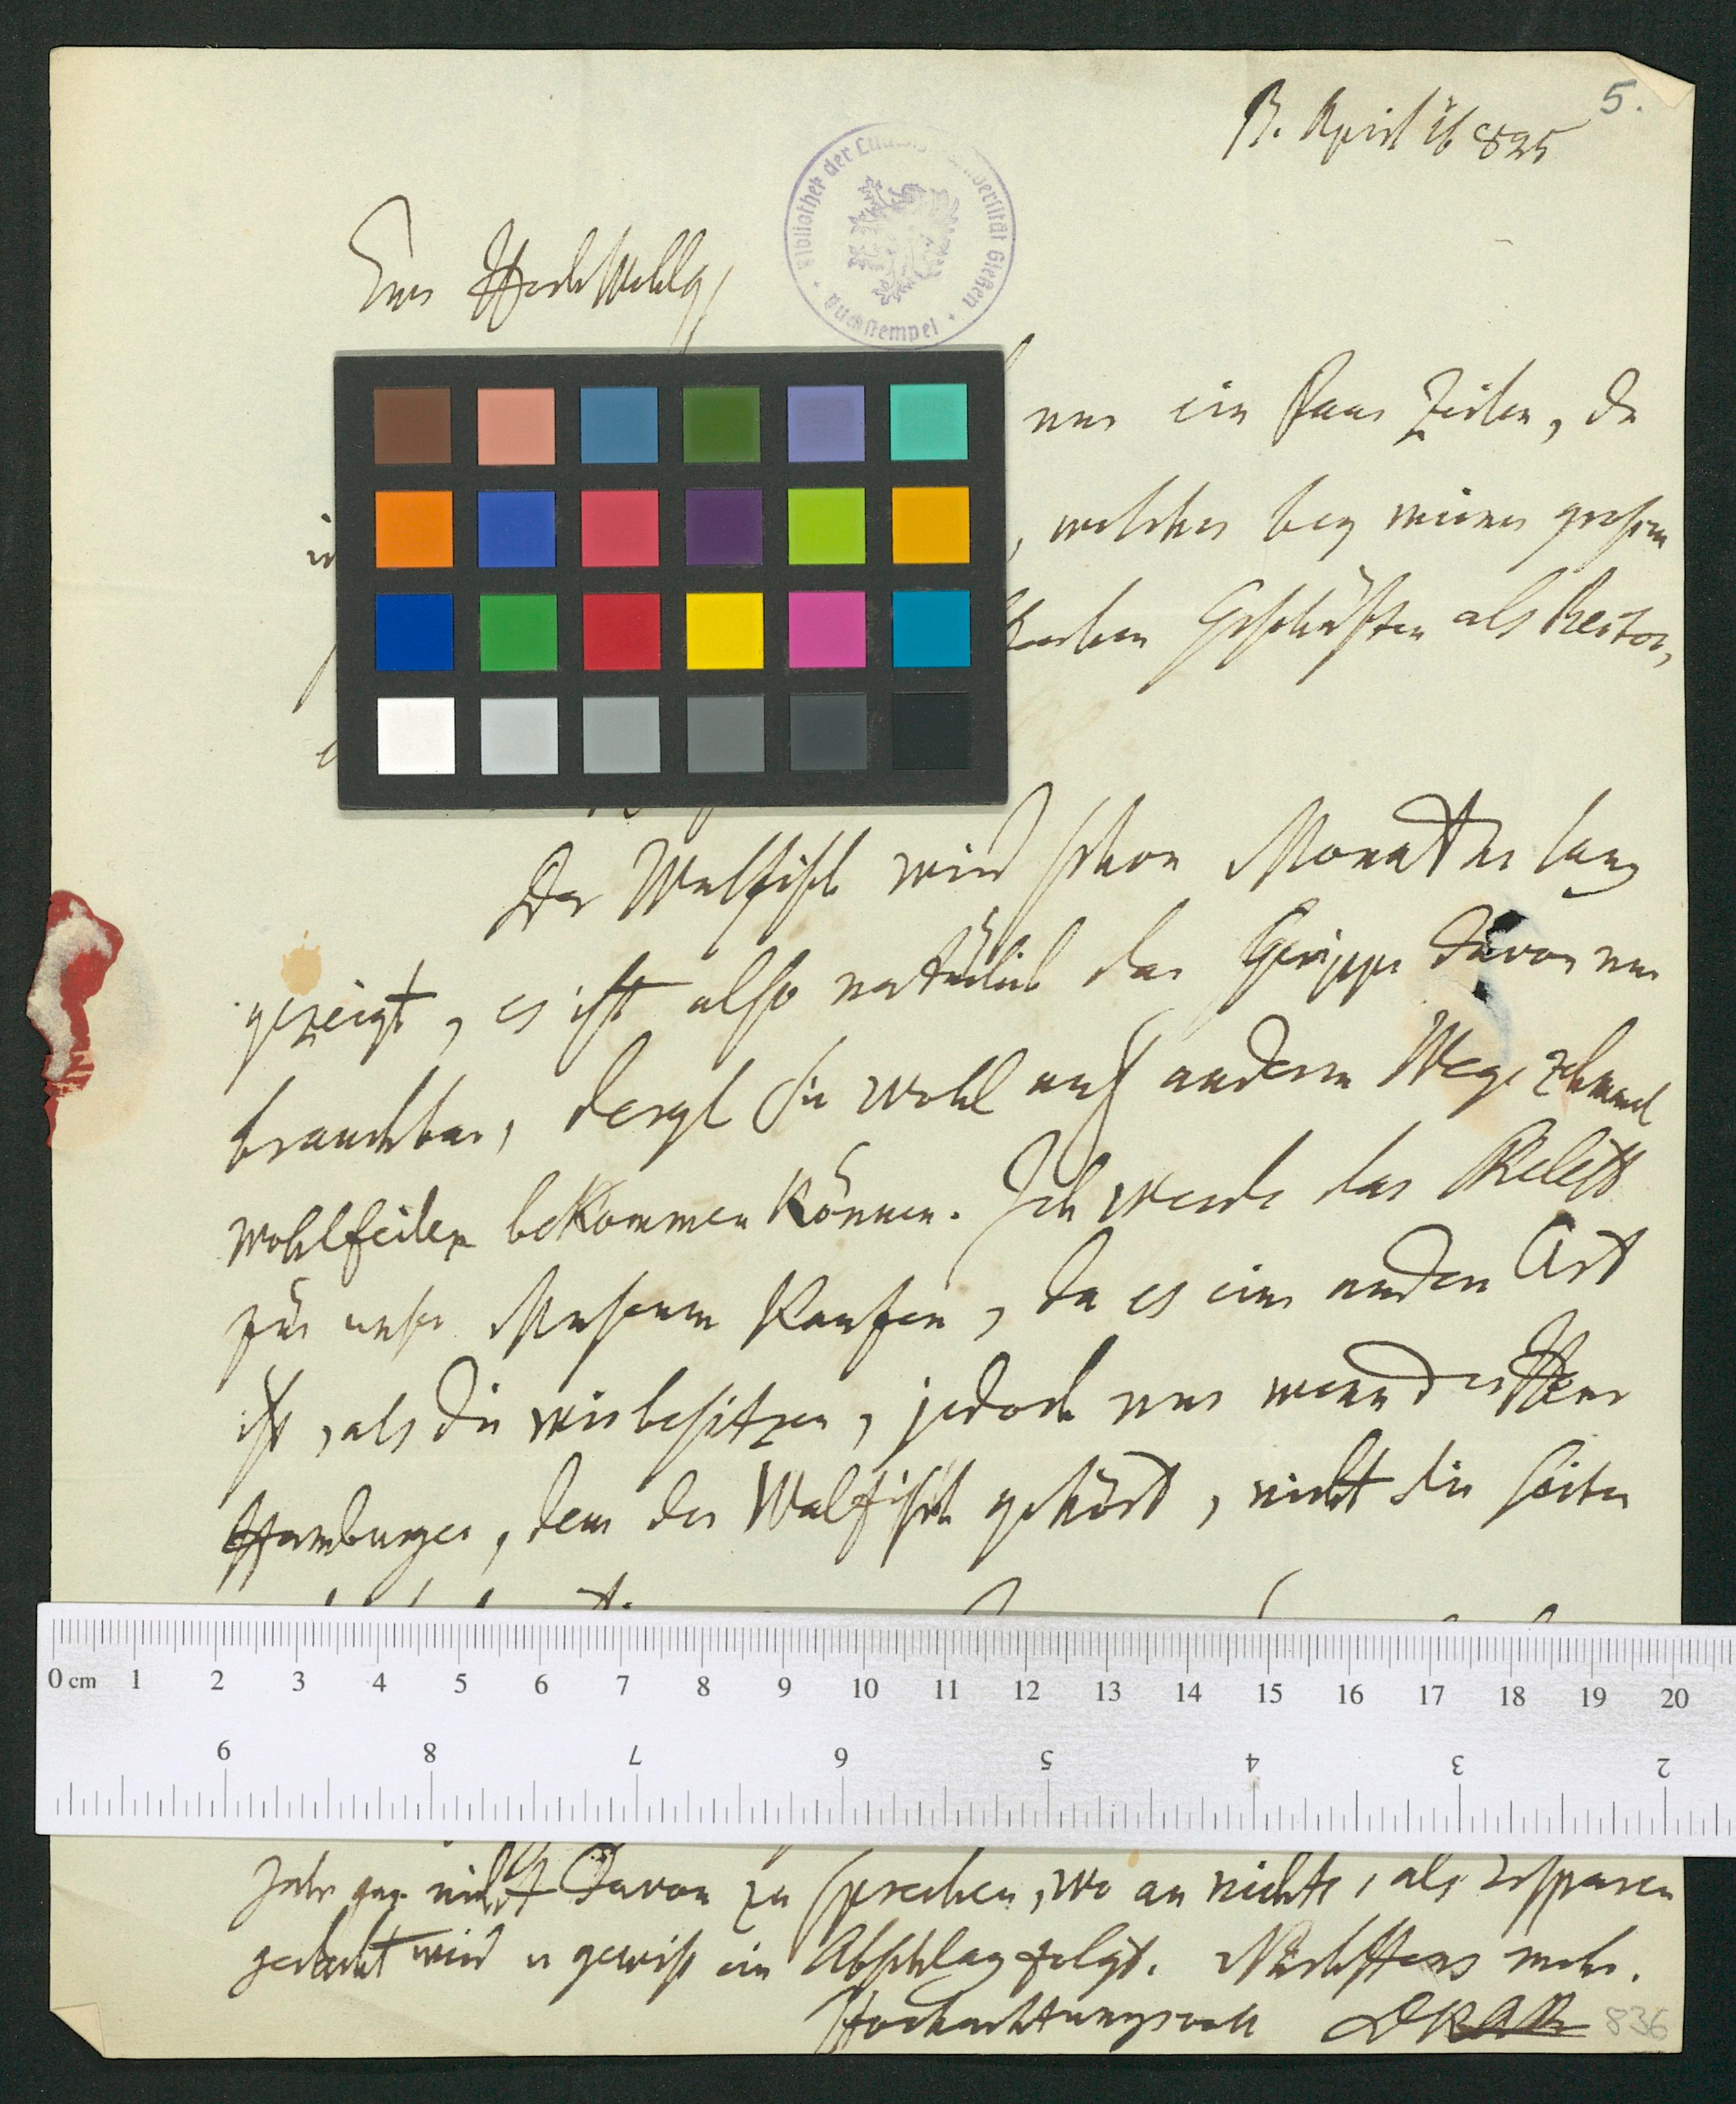 5.
B. April 26 825
Bibliothek der Ludwigs-Universität Gießen
Buchstempel
Euer Hochwohlg
nur ein Paar Zeilen, da
, welcher bey meinen großen
Geschäften als Rector,
Der Wallfisch wird schon Monathe lang
gezeigt, es ist also natürlich das Gerippe davon nur
brauchbar, dergl Sie wohl auf anderm Wege
wohlfeiler bekommen können. Ich werde das Skelett
für unser Museum kaufen, da es eine andere Art
ist, als die wir besitzen, jedoch nur wenn der Herr
Hamburger, dem der Wallfisch gehört, nicht die
0 cm 1 2 3 4 5 6 7 8 9 10 11 12 13 14 15 16 17 18 19 20
9 8 7 6 5 4 3 2
Jahr gar nicht davon zu sprechen, wo an nichts, als Ersparen
gedacht wird u gewiß ein Abschlag folgt. Nächstens mehr.
Hochachtungsvoll
836